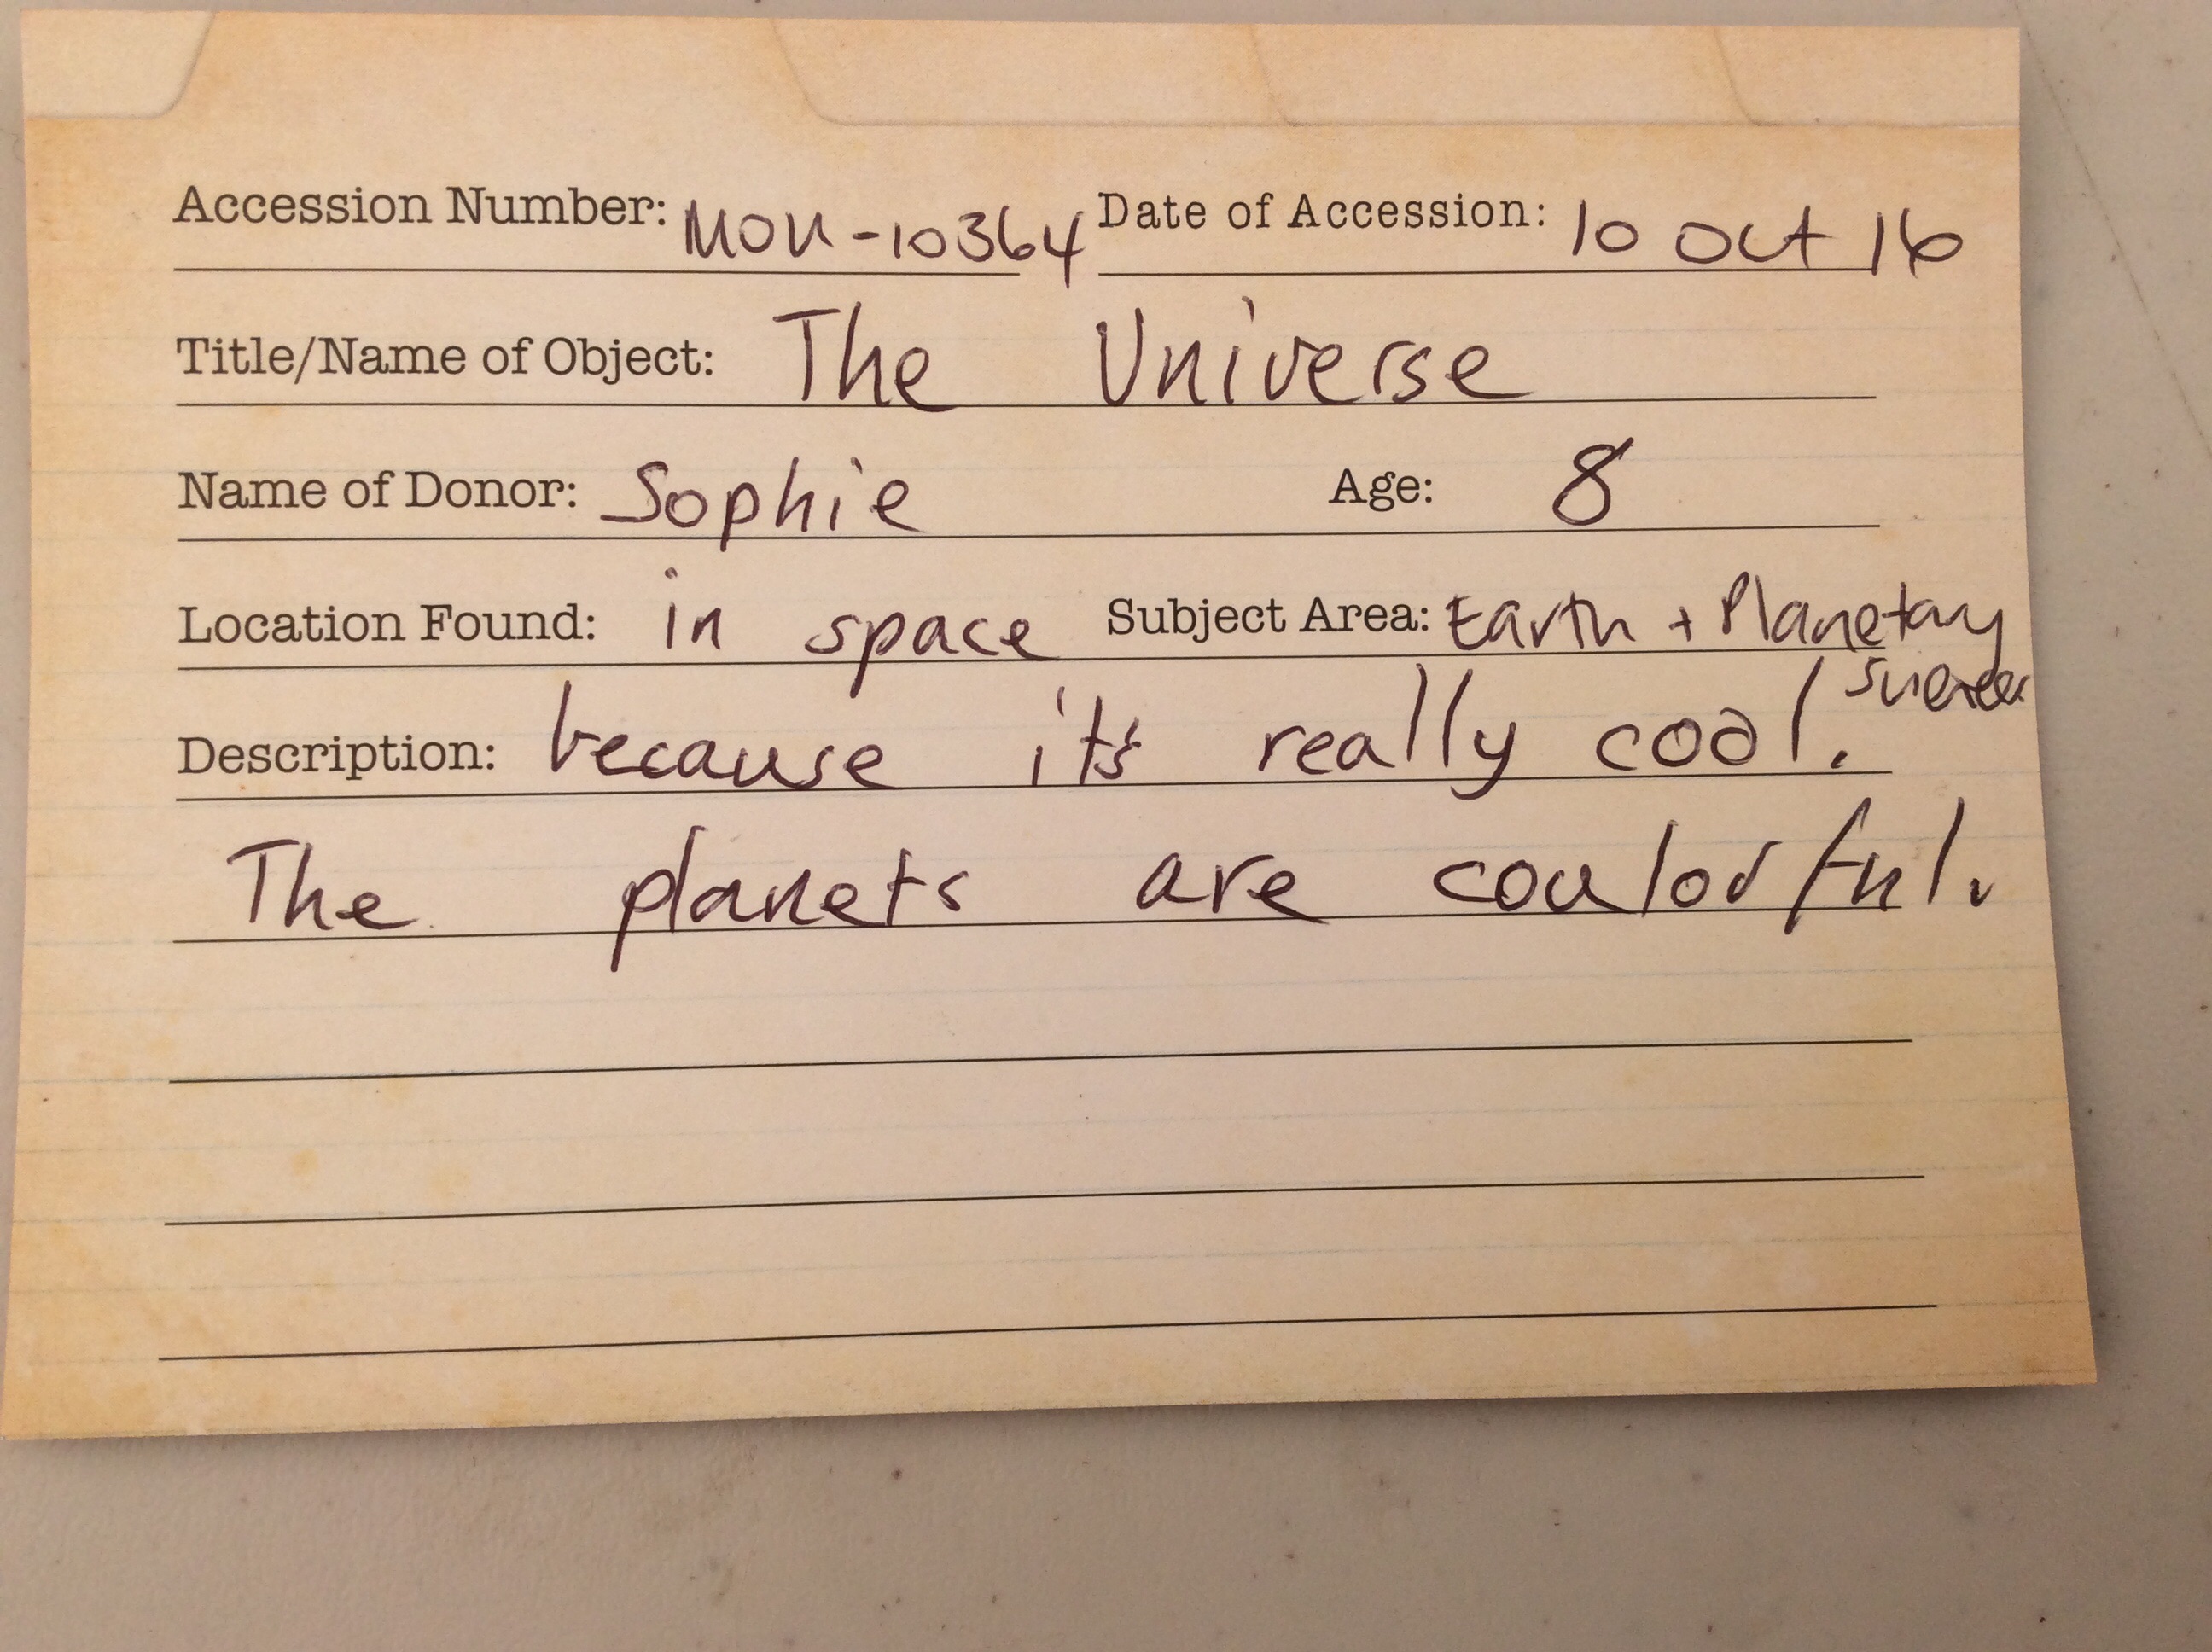 Accession Number: MOU-10364 Date of Accession: 10 Oct 16
Title/Name of Object: The Universe
Name of Donor: Sophie Age: 8
Location Found: in space Subject Area: Earth + Planetary
Description: because it's really cool.
The planets are coulorful.